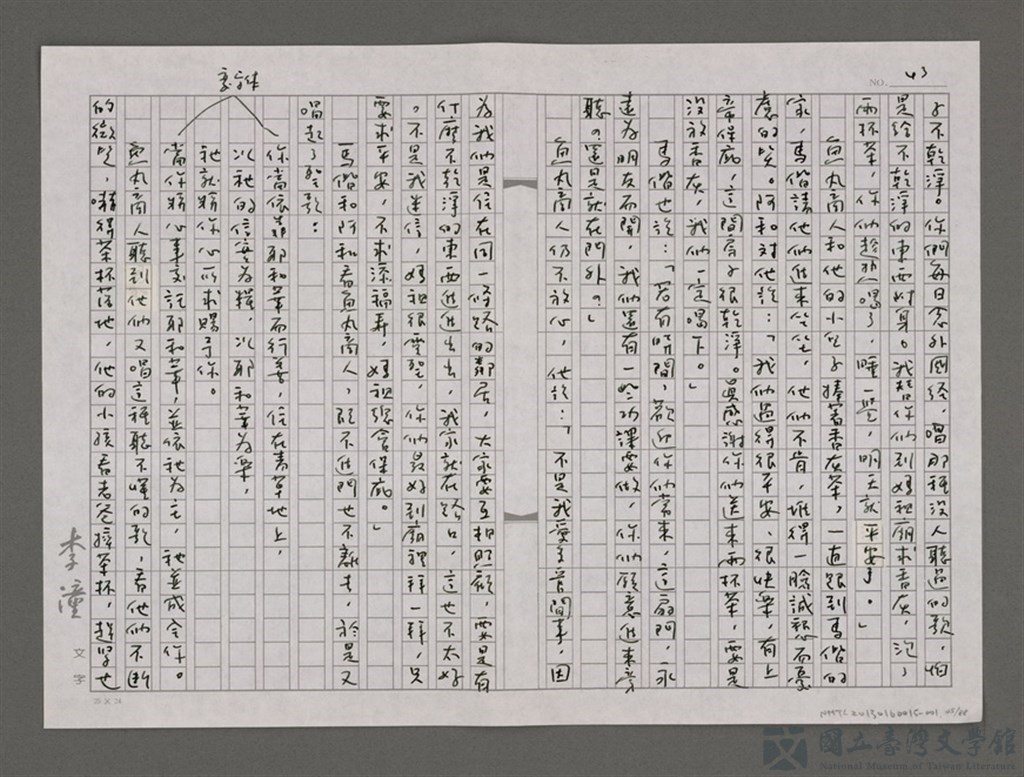 NO. 43
子不乾淨。你們每日念外國經,唱那種沒人聽過的歌,怕
是給不乾淨的東西附身。我替你們到媽祖廟求香灰,泡了
兩杯茶,你們趁熱喝了,睡一覺,明天就平安了。」
魚丸商人和他的小兒子捧著香灰茶,一直跟到馬偕的
家,馬偕請他們進來坐坐,他們不肯,堆得一臉誠懇而憂
慮的笑。阿和對他說:「我們過得很平安、很快樂,有上
帝保庇,這間房子很乾淨。真感謝你們送來兩杯茶,要是
沒放香灰,我們一定喝下。」
馬偕也說:「若有時間,歡迎你們常來,這扇門,永
遠為朋友而開,我們還有一些功課要做,你們願意進來旁
聽?還是就在門外?」
魚丸商人仍不放心,他說:「不是我愛管閒事,因
為我們是住在同一條路的鄰居,大家要互相照顧,要是有
什麼不乾淨的東西進進出出,我家就在路口,這也不太好
。不是我迷信,媽祖很靈聖,你們最好到廟裡拜一拜,只
要求平安,不求添福壽,媽祖總會保庇。」
馬偕和阿和看魚丸商人,既不進門也不離去,於是又
唱起了聖歌:
變字体
你當依靠耶和華而行善,住在青草地上,
以祂的信實為糧,以耶和華為樂,
祂就將你心所求賜予你。
當你將心事交託耶和華,並依祂為主,祂善成全你。
魚丸商人聽到他們又唱這種聽不曉的歌,看他們不斷
的微笑,嚇得茶杯落地,他的小孩看老爸摔茶杯,趕緊也
李潼
文字
25×24
NMTL20150160015-001, 45/68
國立臺灣文學館
National Museum of Taiwan Literature